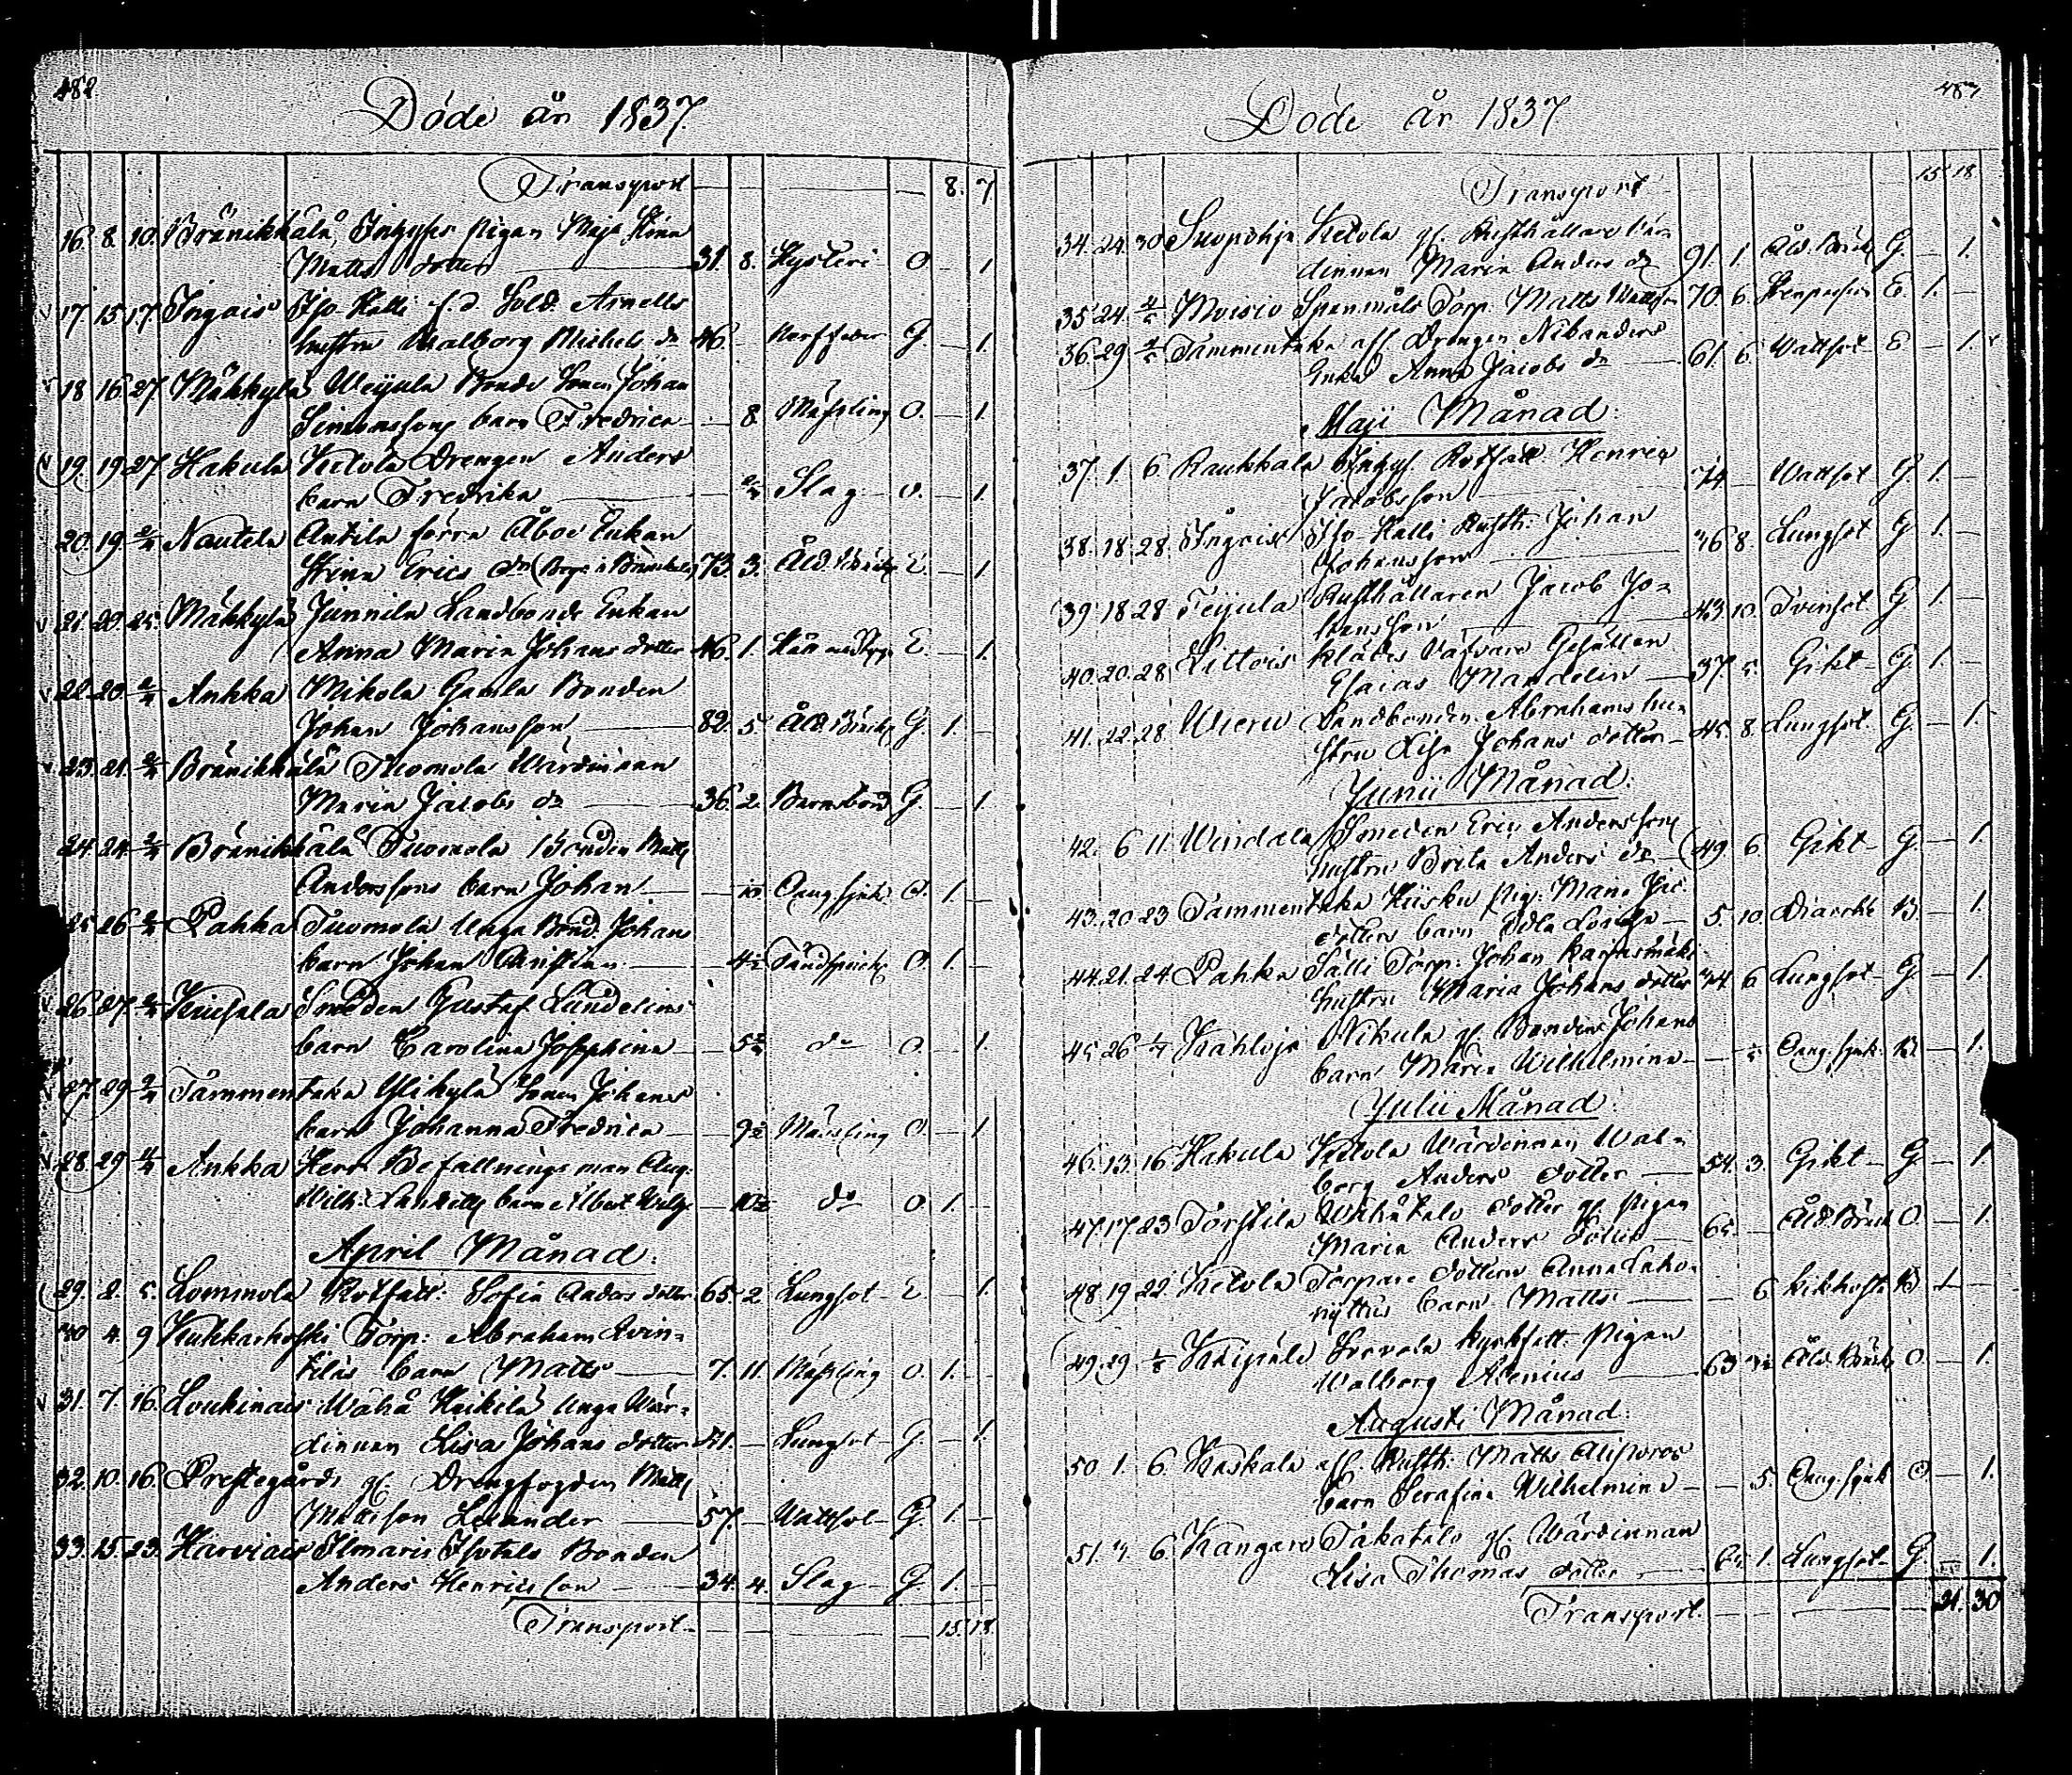 482
Döde år 1837.
Transport 8. 7
16. 8. 10. Bränikkälä, Inhyses pigan Maja Stina
Matts dotter 31. 8. Hysteri O. 1
17 15 17 Ingais Iso Kalli f.d. Sold. Arnells
hustru Walborg Michels dr 46. G. 1.
18 16 27 Mähkylä Weijula Bonde Sonen Johan
Simonssons barn Fredrica 8. Mässling O. 1.
19. 19 27 Hakula Ketola Drengen Anders
barn Fredrika Slag O. 1.
20. 19. 2/4 Nautela Antila förra Åboe Enkan
Stina Erics dr 73. 3. Åld. Bräckl. E. 1
21. 20. 25. Mähkylä Junnila Landbonde Enkan
Anna Maria Johans dotter 46. 1. E. 1.
22. 20. 2/4 Ankka Mikola Gamla Bonden
Johan Johansson 82. 5. Åld. Bräckl. G. 1.
23. 21. 2/4 Bränikkälä Tuomola Wärdinnan
Maria Jacobs dr 36. 2. Barnsbörd G. 1.
24. 24. 2/4 Bränikkälä Tuomola Bonden Matts
Anderssons barn Johan 10. Aung sjuk. O. 1.
25 26 2/4 Pahka Tuomola Unga Bond. Johans
barn Johan Christian 4½ Tandsprickn. O. 1.
26 27 2/4 Kuisala Smeden Gustaf Lundelins
barn Carolina Josephina do O. 1.
27. 29 2/4 Tammentaka Ylikylä Sonen Johans
barn Johanna Fredrica 9½ Mässling O. 1
28. 29 4/4 Ankka Herr Befallningsman Aug.
Wilh. barn Albert Wilh. 10½ do O. 1.
April Månad.
29. 2. 5. Lommola Rotfatt. Sofia Anders dotter 65. 2 Lungsot E. 1.
30 4. 9 Kukkarkoski Torp. Abraham Qvin-
tilas barn Matts 7. 11. Mässling O. 1.
31. 7. 16. Loukinais Wähä Heikilä Unga Wär-
dinnan Lisa Johans dotter 21. Lungsot G. 1.
32. 10. 16. Prestegårds gl. Drengfogden Matts
Matsson Leander 57. Wattsot G. 1.
33. 15. 23. Harviais Ilmaris Isotalo Bonden
Anders Henricsson 34. 4. Slag G. 1.
Transport 15. 18.
483
Döde år 1837
Transport 15 18
34. 24. 30 Suopohja Ketola gl. Rusthållare Vär-
dinnan Maria Anders dr 91. 1. Åld. Bräckl. G. 1.
35 24. 4/5 Moisio Spanmåls Torp. Matts Mattsson 70. 6. E. 1.
36. 29 2/5 Tammentaka afl. Drengen Nibanders
Enka Anna Jacobs dr 61. 6. Wattsot E 1.
Maji Månad.
37. 1 6 Raukkala Inhys. Rotfatt. Henric
Jacobsson 74 Wattsot G. 1.
38. 18 28. Ingais Iso-Kalli Rusth. Johan
Johansson 36 8. Lungsot G 1.
39. 18 28 Teijula Rusthållaren Jacob Jo-
hansson 43. 10. Tvinsot G 1.
40. 20. 28. Littois Klädes Väfvare Gesällen
Esaias Mandelin 37. 5. Gikt G. 1.
41. 22. 28 Wieru Landbonden Abrahams hu-
stru Lisa Johans dotter 45. 8. Lungsot G. 1.
Junii Månad.
42. 6 11 Windala Smeden Eric Anderssons
hustru Brita Anders dr 49. 6. Gikt G. 1.
43. 20 23 Tammentaka Kiisku Pig. Maria Jac.
dotters barn Edla Lovisa 5. 10. Diarrhé B. 1.
44. 21. 24. Pahka Sälli Torp. Johan Karjasmäki
hustru Maria Johans dotter 34 6 Lungsot G 1.
45 26 1/7 Kahloja Nikula gl. Bonden Johans
barn Maria Wilhelmina Aung. sjuk. B. 1.
Julii Månad.
46. 13. 16 Hakula Ketola Wärdinnan Wal-
borg Anders dotter 54. 3. Gikt G 1.
47. 17 23 Torstila Wähätalo dotter gl. Pigan
Maria Anders dotter 65. Åld. Bräckl. O. 1.
48 19 22. Ketola Torpare dottern Anna
barn Matts 6. Kikhosta B 1
49. 29 1/8 Wolborg Alenius 63 Åld. Bräckl. O. 1.
Augusti Månad.
50 1. 6. Kaskala afl. Rusth. Matts
barn Serafina Wilhelmina 5. Aung. sjuk O 1.
51. 4. 6. Kangars Takatalo gl. Wärdinnan
Lisa Thomas dotter 65. 1. Lungsot G. 1.
Transport 21. 30